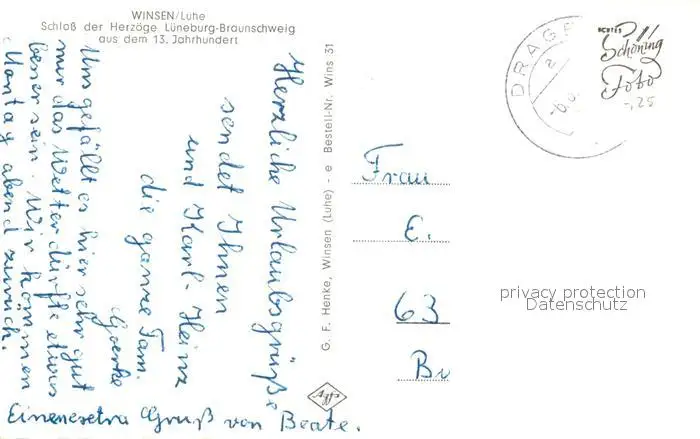 WINSEN/Luhe
Schloß der Herzöge Lüneburg-Braunschweig
aus dem 13. Jahrhundert
Herzliche Urlaubsgrüße
sendet Ihnen
und Karl-Heinz
die ganze Fam.
Goerke
Uns gefällt es hier sehr gut
nur das Wetter dürfte etwas
besser sein. Wir kommen
Montag abend zurück.
Einen extra Gruß von Beate.
G. F. Henke, Winsen (Luhe) - e Bestell-Nr. Wins 31
Agfa
DRAGE
a
ECHTES
Schöning
Foto
-,25
Frau
E.
63
Br
privacy protection
Datenschutz